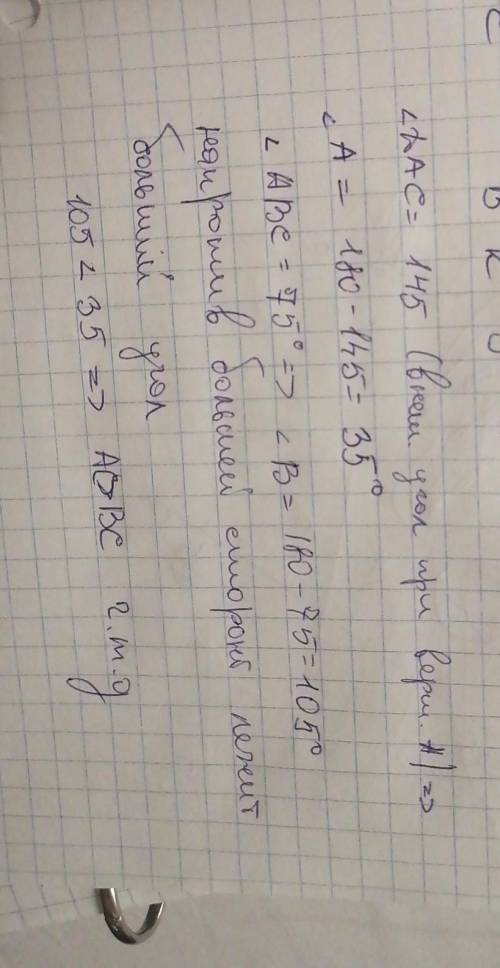 С В К О
∠DAC = 145 (внеш угол при верш. A) =>
∠A = 180 - 145 = 35°
∠ABC = 75° => ∠B = 180 - 75 = 105°
напротив большей стороны лежит
больший угол
105 < 35 => AC>BC ч.т.д